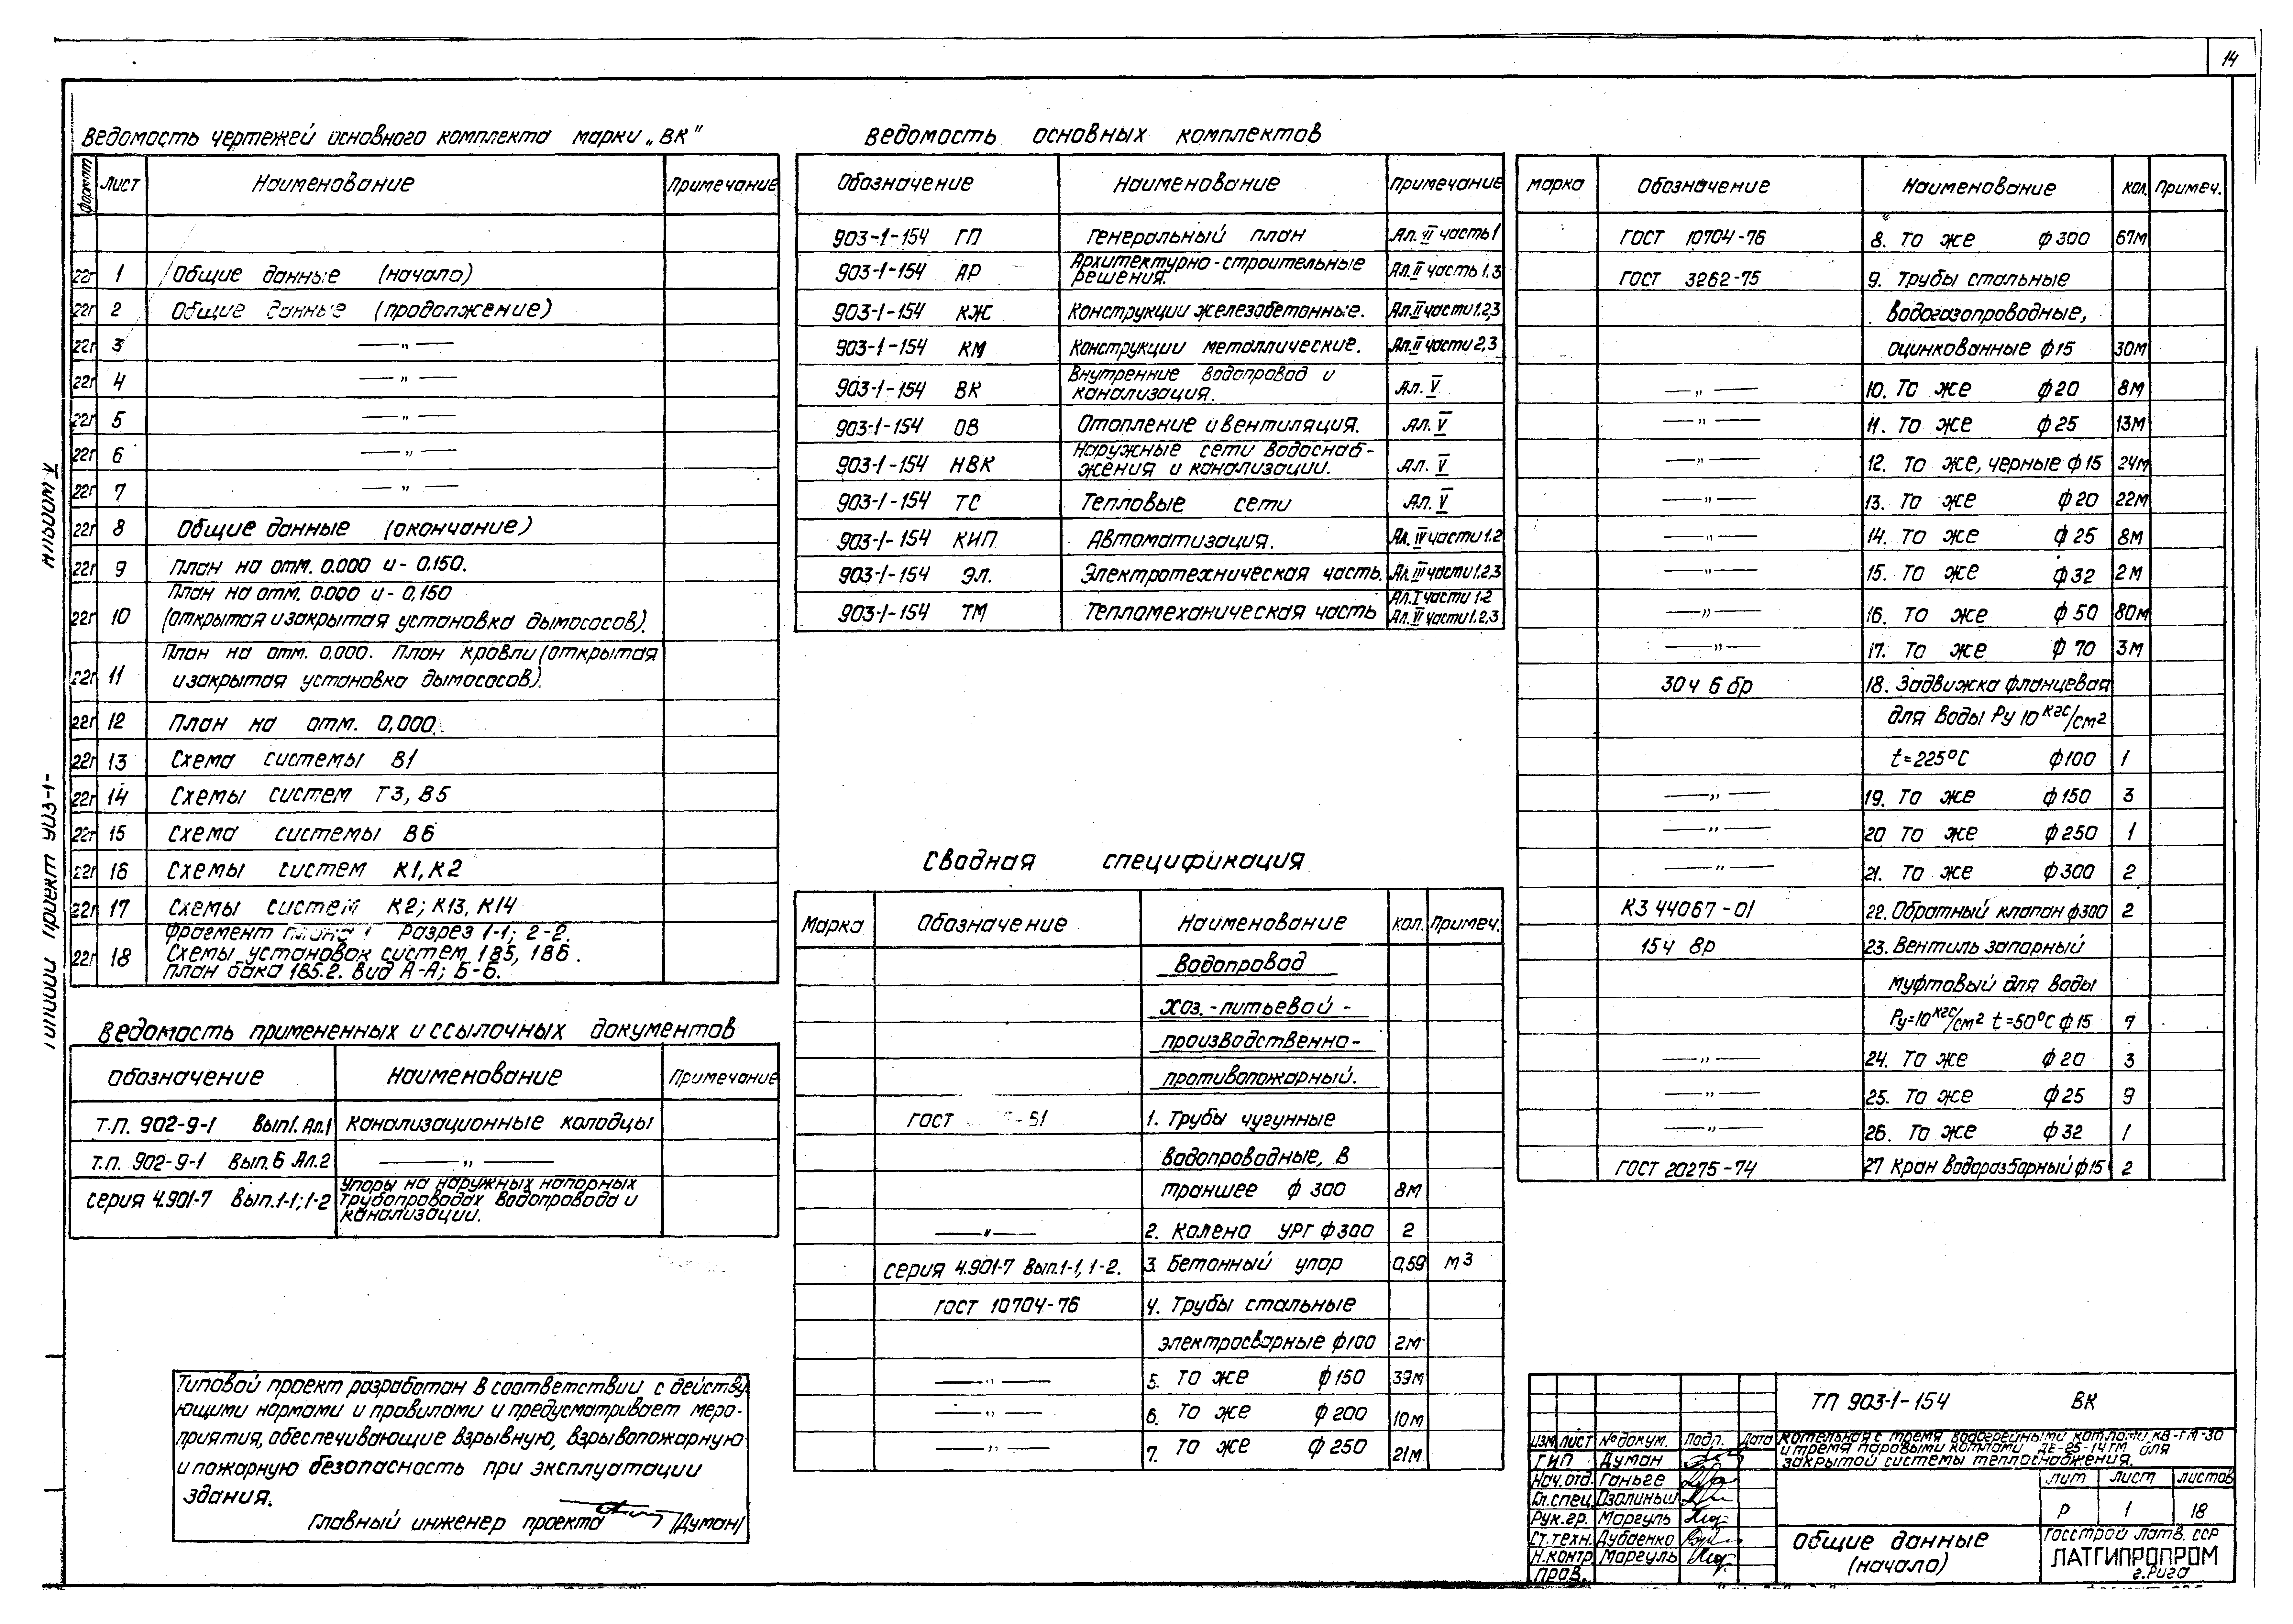 14
Ведомость чертежей основного комплекта марки „ВК"
Формат Лист Наименование Примечание
22г 1 Общие данные (начало)
22г 2 Общие данные (продолжение)
22г 3 —„—
22г 4 —„—
22г 5 —„—
22г 6 —„—
22г 7 —„—
22г 8 Общие данные (окончание)
22г 9 План на отм. 0.000 и -0,150.
22г 10 План на отм. 0.000 и -0,150
(открытая и закрытая установка дымососов).
22г 11 План на отм. 0,000. План кровли (открытая
и закрытая установка дымососов).
22г 12 План на отм. 0,000.
22г 13 Схема системы В1
22г 14 Схемы систем Т3, В5
22г 15 Схема системы В6
22г 16 Схемы систем К1, К2
22г 17 Схемы систем К2; К13, К14
22г 18 Фрагмент плана 1 Разрез 1-1; 2-2.
Схемы установок систем 185, 186.
План бака 185.2. Вид А-А; Б-Б.
Ведомость примененных и ссылочных документов
Обозначение Наименование Примечание
Т.П. 902-9-1 Вып1. Ал.1 Канализационные колодцы
Т.П. 902-9-1 Вып. 6 Ал.2 —„—
серия 4.901-7 Вып.1-1; 1-2 Упоры на наружных напорных
трубопроводах водопровода и
канализации.
Типовой проект разработан в соответствии с действу
ющими нормами и правилами и предусматривает меро-
приятия, обеспечивающие взрывную, взрывопожарную
и пожарную безопасность при эксплуатации
здания.
Главный инженер проекта /Думан/
Ведомость основных комплектов
Обозначение Наименование Примечание
903-1-154 ГП Генеральный план Ал. II часть 1
903-1-154 АР Архитектурно-строительные
решения. Ал. II часть 1,3
903-1-154 КЖ Конструкции железобетонные. Ал. II части 1,2,3
903-1-154 КМ Конструкции металлические. Ал. II части 2,3
903-1-154 ВК Внутренние водопровод и
канализация. Ал. V
903-1-154 ОВ Отопление и вентиляция. Ал. V
903-1-154 НВК Наружные сети водоснаб-
жения и канализации. Ал. V
903-1-154 ТС Тепловые сети Ал. V
903-1-154 КИП Автоматизация. Ал. IV части 1.2
903-1-154 ЭЛ. Электротехническая часть. Ал. III части 1,2,3
903-1-154 ТМ Тепломеханическая часть Ал. I части 1.2
Ал. VI части 1.2,3
Сводная спецификация
Марка Обозначение Наименование Кол. Примеч.
Водопровод
хоз.-питьевой-
производственно-
противопожарный.
ГОСТ 1. Трубы чугунные
водопроводные, В
траншее ф 300 8м
—„— 2. Колено УРГ ф300 2
серия 4.901-7 Вып.1-1, 1-2. 3. Бетонный упор 0,59 м3
ГОСТ 10704-76 4. Трубы стальные
электросварные ф100 2м
—„— 5. То же ф150 39м
—„— 6. То же ф200 10м
—„— 7. То же ф 250 21м
марка Обозначение Наименование кол. Примеч.
ГОСТ 10704-76 8. То же ф300 67м
ГОСТ 3262-75 9. Трубы стальные
водогазопроводные,
оцинкованные ф15 30м
—„— 10. То же ф20 8м
—„— 11. То же ф25 13м
—„— 12. То же, черные ф15 24м
—„— 13. То же ф20 22м
—„— 14. То же ф25 8м
—„— 15. То же ф32 2м
—„— 16. То же ф50 80м
—„— 17. То же ф 70 3м
30ч 6 бр 18. Задвижка фланцевая
для воды Ру 10 кгс/см2
t=225°С ф100 1
—„— 19. То же ф150 3
—„— 20 То же ф250 1
—„— 21. То же ф300 2
КЗ 44067-01 22. Обратный клапан ф300 2
15ч 8р 23. Вентиль запорный
муфтовый для воды
Ру=10 кгс/см2 t=50°С ф15 7
—„— 24. То же ф20 3
—„— 25. То же ф25 9
—„— 26. То же ф32 1
ГОСТ 20275-74 27 Кран водоразборный ф15 2
ТП 903-1-154 ВК
Котельная с тремя водогрейными котлами КВ-ГМ-30
и тремя паровыми котлами ДЕ-25-14ГМ для
закрытой системы теплоснабжения.
Изм. Лист № докум. Подп. Дата
ГИП Думан
Нач. отд. Ганьге
Гл. спец. Озолиньш
Рук. гр. Моргуль
Ст. техн. Дубаенко
Н. контр Моргуль
Пров.
Лит Лист Листов
Р 1 18
Общие данные
(начало)
Госстрой Латв. ССР
ЛАТГИПРОПРОМ
г. Рига
Альбом V
Типовой проект 903-1-